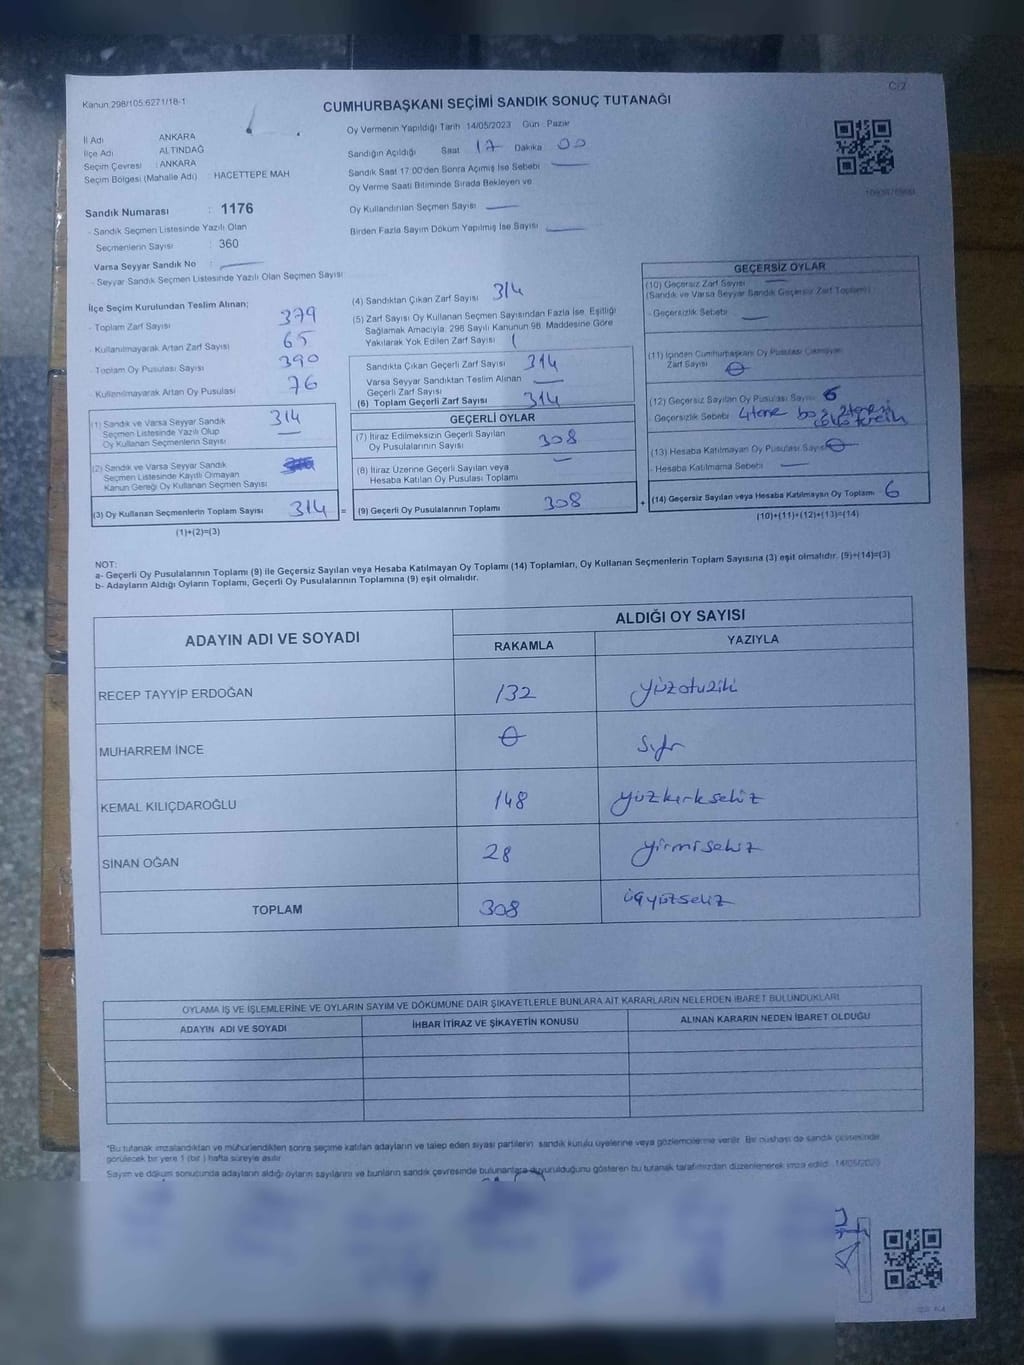 Kanun 298/105:6271/18-1
C/2
CUMHURBAŞKANI SEÇİMİ SANDIK SONUÇ TUTANAĞI
İl Adı ANKARA
İlçe Adı ALTINDAĞ
Seçim Çevresi : ANKARA
Seçim Bölgesi (Mahalle Adı) : HACETTEPE MAH
Sandık Numarası : 1176
- Sandık Seçmen Listesinde Yazılı Olan
Seçmenlerin Sayısı : 360
Varsa Seyyar Sandık No :
- Seyyar Sandık Seçmen Listesinde Yazılı Olan Seçmen Sayısı
Oy Vermenin Yapıldığı Tarih 14/05/2023 Gün : Pazar
Sandığın Açıldığı Saat 17 Dakika 00
Sandık Saat 17:00'den Sonra Açımış İse Sebebi
Oy Verme Saati Bitiminde Sırada Bekleyen ve
Oy Kullandırılan Seçmen Sayısı
Birden Fazla Sayım Döküm Yapılmış İse Sayısı
İlçe Seçim Kurulundan Teslim Alınan;
- Toplam Zarf Sayısı 379
- Kullanılmayarak Artan Zarf Sayısı 65
- Toplam Oy Pusulası Sayısı 390
- Kullanılmayarak Artan Oy Pusulası 76
(1) Sandık ve Varsa Seyyar Sandık
Seçmen Listesinde Yazılı Olup
Oy Kullanan Seçmenlerin Sayısı 314
(2) Sandık ve Varsa Seyyar Sandık
Seçmen Listesinde Kayıtlı Olmayan
Kanun Gereği Oy Kullanan Seçmen Sayısı
(3) Oy Kullanan Seçmenlerin Toplam Sayısı 314 =
(1)+(2)=(3)
(4) Sandıktan Çıkan Zarf Sayısı 314
(5) Zarf Sayısı Oy Kullanan Seçmen Sayısından Fazla İse, Eşitliği
Sağlamak Amacıyla, 298 Sayılı Kanunun 98. Maddesine Göre
Yakılarak Yok Edilen Zarf Sayısı
Sandıkta Çıkan Geçerli Zarf Sayısı 314
Varsa Seyyar Sandıktan Teslim Alınan
Geçerli Zarf Sayısı
(6) Toplam Geçerli Zarf Sayısı 314
GEÇERLİ OYLAR
(7) İtiraz Edilmeksizin Geçerli Sayılan
Oy Pusulalarının Sayısı 308
(8) İtiraz Üzerine Geçerli Sayılan veya
Hesaba Katılan Oy Pusulası Toplamı
(9) Geçerli Oy Pusulalarının Toplamı 308 +
GEÇERSİZ OYLAR
(10) Geçersiz Zarf Sayısı
(Sandık ve Varsa Seyyar Sandık Geçersiz Zarf Toplamı)
- Geçersizlik Sebebi
(11) İçinden Cumhurbaşkanı Oy Pusulası Çıkmayan
Zarf Sayısı 0
(12) Geçersiz Sayılan Oy Pusulası Sayısı 6
- Geçersizlik Sebebi 4tane boş 2tanesi
(13) Hesaba Katılmayan Oy Pusulası Sayısı 0
- Hesaba Katılmama Sebebi
(14) Geçersiz Sayılan veya Hesaba Katılmayan Oy Toplamı 6
(10)+(11)+(12)+(13)=(14)
NOT:
a- Geçerli Oy Pusulalarının Toplamı (9) ile Geçersiz Sayılan veya Hesaba Katılmayan Oy Toplamı (14) Toplamları, Oy Kullanan Seçmenlerin Toplam Sayısına (3) eşit olmalıdır. (9)+(14)=(3)
b- Adayların Aldığı Oyların Toplamı, Geçerli Oy Pusulalarının Toplamına (9) eşit olmalıdır.
ADAYIN ADI VE SOYADI ALDIĞI OY SAYISI
RAKAMLA YAZIYLA
RECEP TAYYİP ERDOĞAN 132 yüzotuziki
MUHARREM İNCE 0 Sıfır
KEMAL KILIÇDAROĞLU 148 yüzkırksekiz
SİNAN OĞAN 28 yirmisekiz
TOPLAM 308 üçyüzsekiz
OYLAMA İŞ VE İŞLEMLERİNE VE OYLARIN SAYIM VE DÖKÜMÜNE DAİR ŞİKAYETLERLE BUNLARA AİT KARARLARIN NELERDEN İBARET BULUNDUKLARI
ADAYIN ADI VE SOYADI İHBAR İTİRAZ VE ŞİKAYETİN KONUSU ALINAN KARARIN NEDEN İBARET OLDUĞU
*Bu tutanak imzalandıktan ve mühürlendikten sonra seçime katılan adayların ve talep eden siyasi partilerin sandık kurulu üyelerine veya gözlemcilerine verilir. Bir nüshası da sandık çevresinde
görülecek bir yere 1 (bir ) hafta süreyle asılır
Sayım ve döküm sonucunda adayların aldığı oyların sayılarını ve bunların sandık çevresinde bulunanlara duyurulduğunu gösteren bu tutanak tarafımızdan düzenlenerek imza edildi 14/05/2023